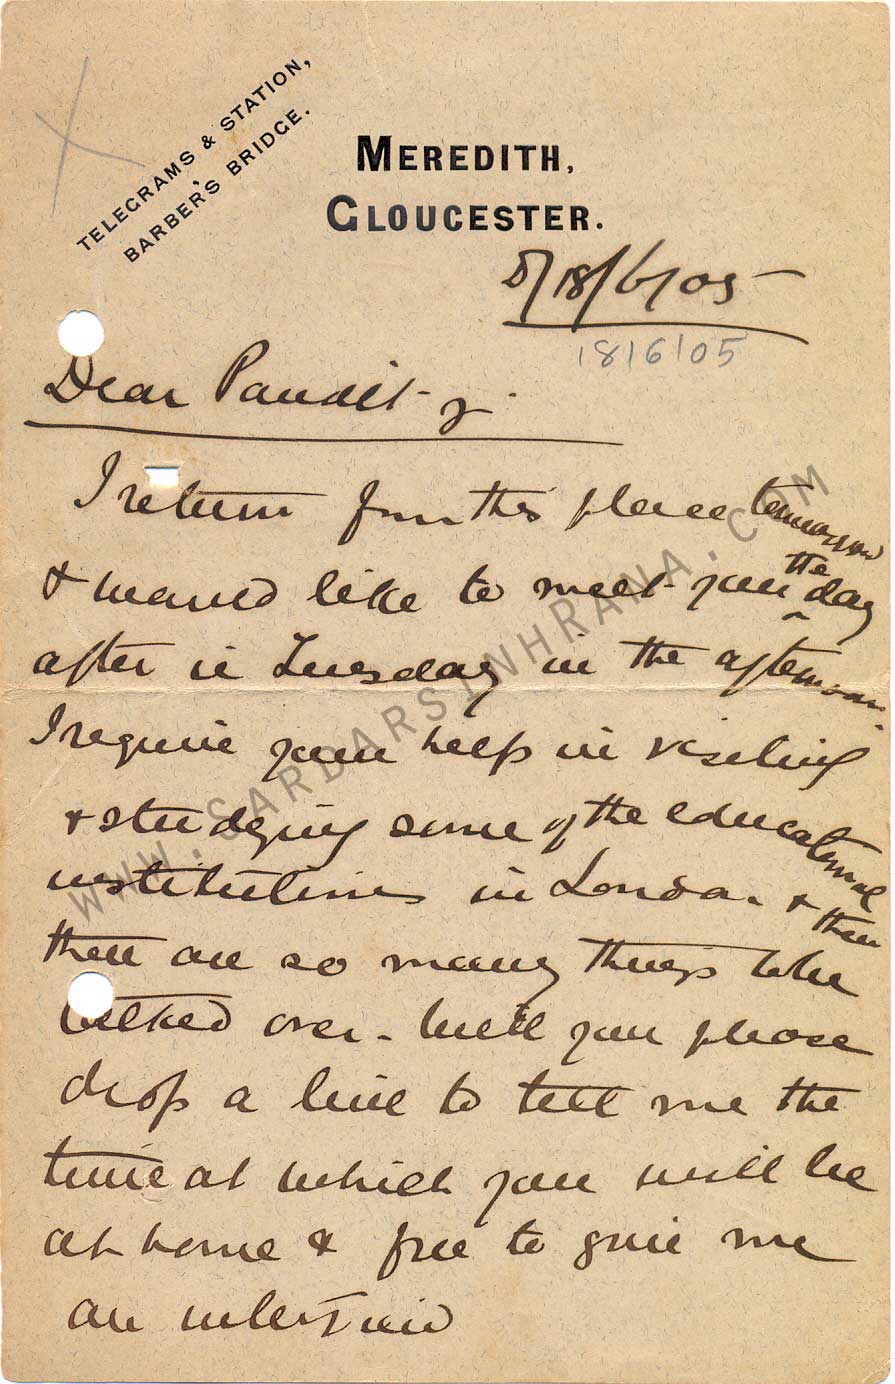 TELEGRAMS & STATION,
BARBER'S BRIDGE.
MEREDITH,
GLOUCESTER.
18/6/05
18/6/05
Dear Pandit-ji
I return from this place tomorrow
& would like to meet you the day
after ie Tuesday in the afternoon.
I require your help in visiting
& studying some of the educational
institutions in London & then
there are so many things to be
talked over. Will you please
drop a line to tell me the
time at which you will be
at home & free to give me
an interview
WWW.SARDARSINHRANA.COM